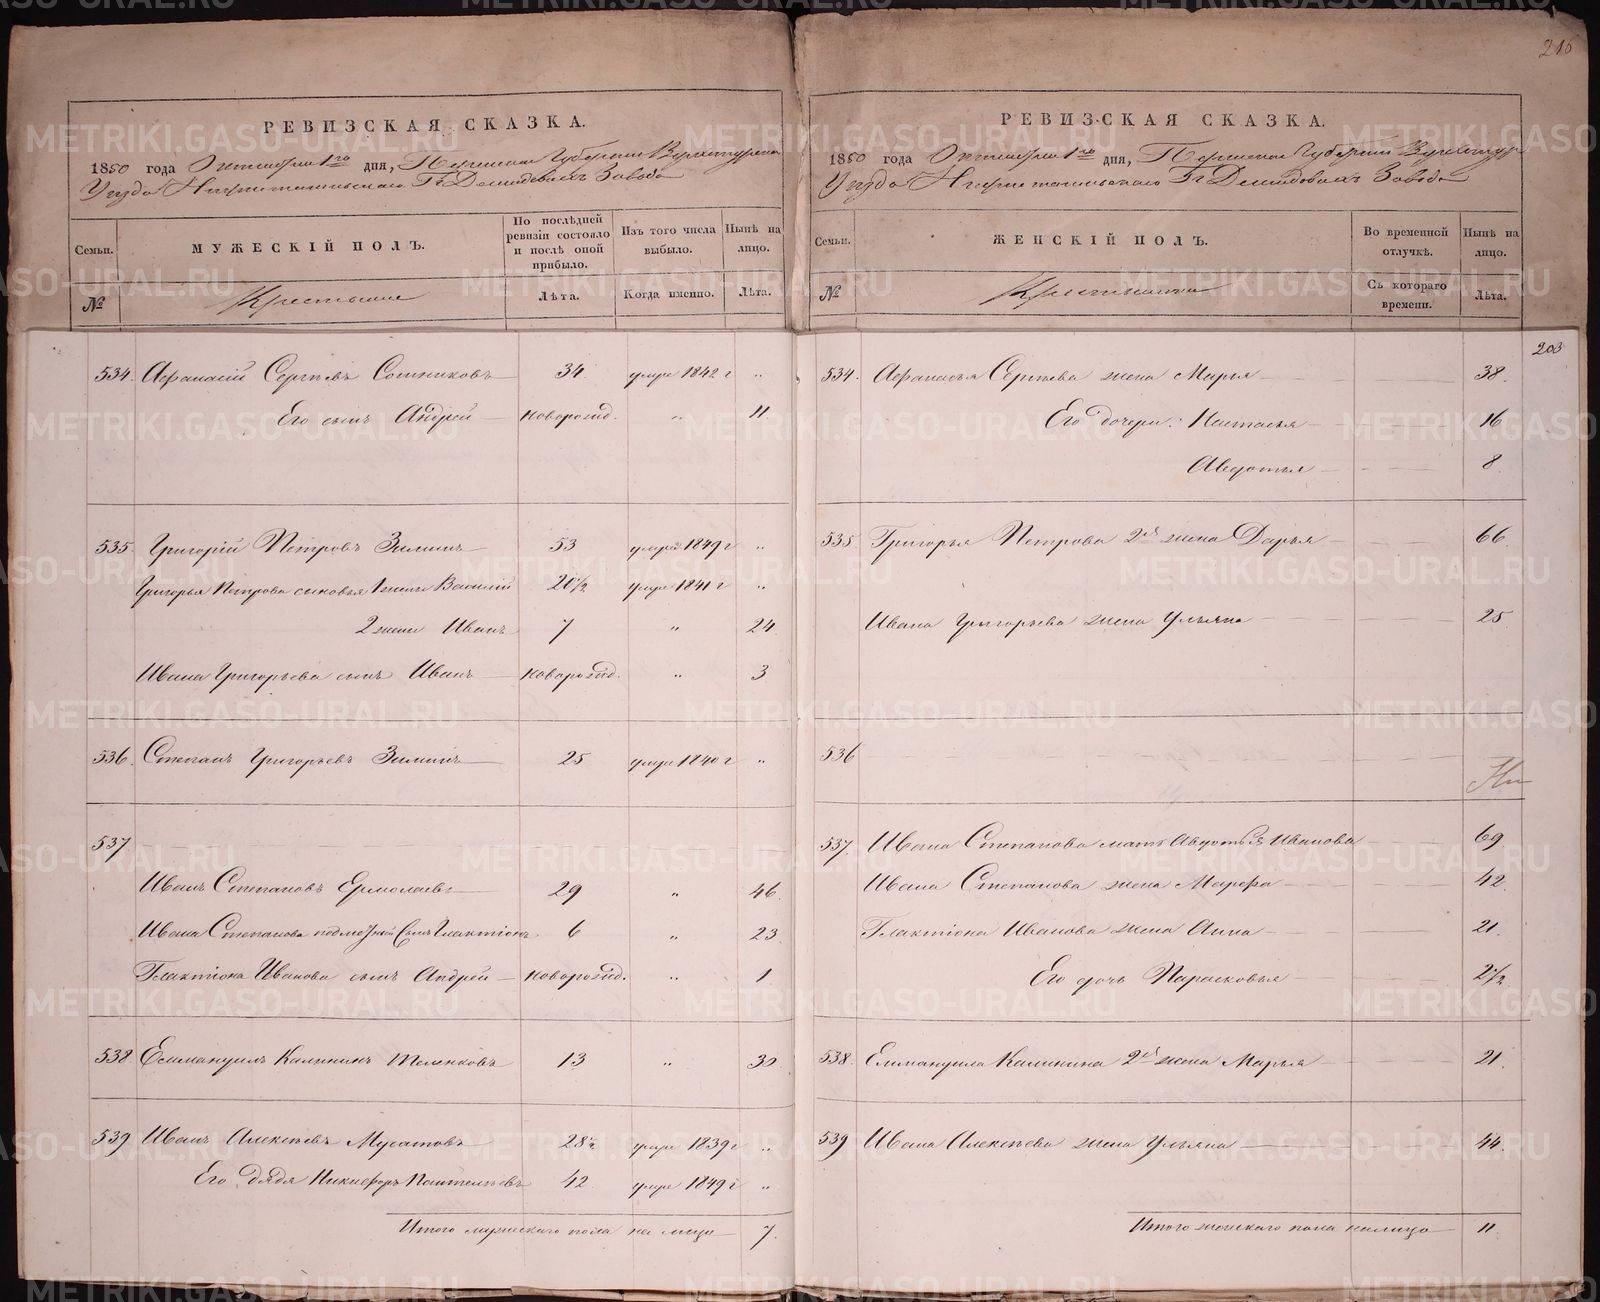 216
РЕВИЗСКАЯ СКАЗКА.
1850 года Октября 1го дня, Пермской Губернии Верхотурска
Уезда Нижнетагильскаго Гг Демидовыхъ Завода
Семьи. МУЖЕСКІЙ ПОЛЪ. По послѣдней ревизіи состояло и послѣ оной прибыло. Изъ того числа выбыло. Нынѣ на лицо.
№ Крестьяне Лѣта. Когда именно. Лѣта.
534. Афанасій Сергѣевъ 34 умре 1842 г "
Его сынъ Андрей новорожд. " 11
535. Григорій Петровъ Зиминъ 53 умре 1849 г "
Григорья Петрова сыновья 1 жены Василій 20½ умре 1841 г "
2 жены Иванъ 7 " 24
Ивана Григорьева сынъ Иванъ новорожд. " 3
536. Степанъ Григорьевъ Зиминъ 25 умре 1840 г "
537
Иванъ Степановъ Ермолаевъ 29 " 46
Ивана Степанова сынъ Глактіонъ 6 " 23
Глактіона Иванова сынъ Андрей новорожд. " 1
538 Еммануилъ Калининъ Теленковъ 13 " 30
539 Иванъ Алексѣевъ Мусатовъ 28½ умре 1839 г "
Его дядя Никифоръ 42 умре 1849 г "
Итого мужескаго пола на лицо 7.
РЕВИЗСКАЯ СКАЗКА.
1850 года Октября 1го дня, Пермской Губернии Верхотур
Уезда Нижнетагильскаго Гг Демидовыхъ Завода
Семьи. ЖЕНСКІЙ ПОЛЪ. Во временной отлучкѣ. Нынѣ на лицо.
№ Крестьянки Съ котораго времени. Лѣта.
203
534. Афанасья Сергѣева жена Марья 38.
Его дочери: Настасья 16
Авдотья 8.
535 Григорья Петрова 2я жена Дарья 66
Ивана Григорьева жена Ульяна 25
536
537. Ивана Степанова мать Авдотья Иванова 69
Ивана Степанова жена Марфа 42.
Глактіона Иванова жена Анна 21.
Его дочь Парасковья 2½
538. Еммануила Калинина 2я жена Марья 21.
539 Ивана Алексѣева жена Ульяна 44.
Итого женскаго пола налицо 11
METRIKI.GASO-URAL.RU